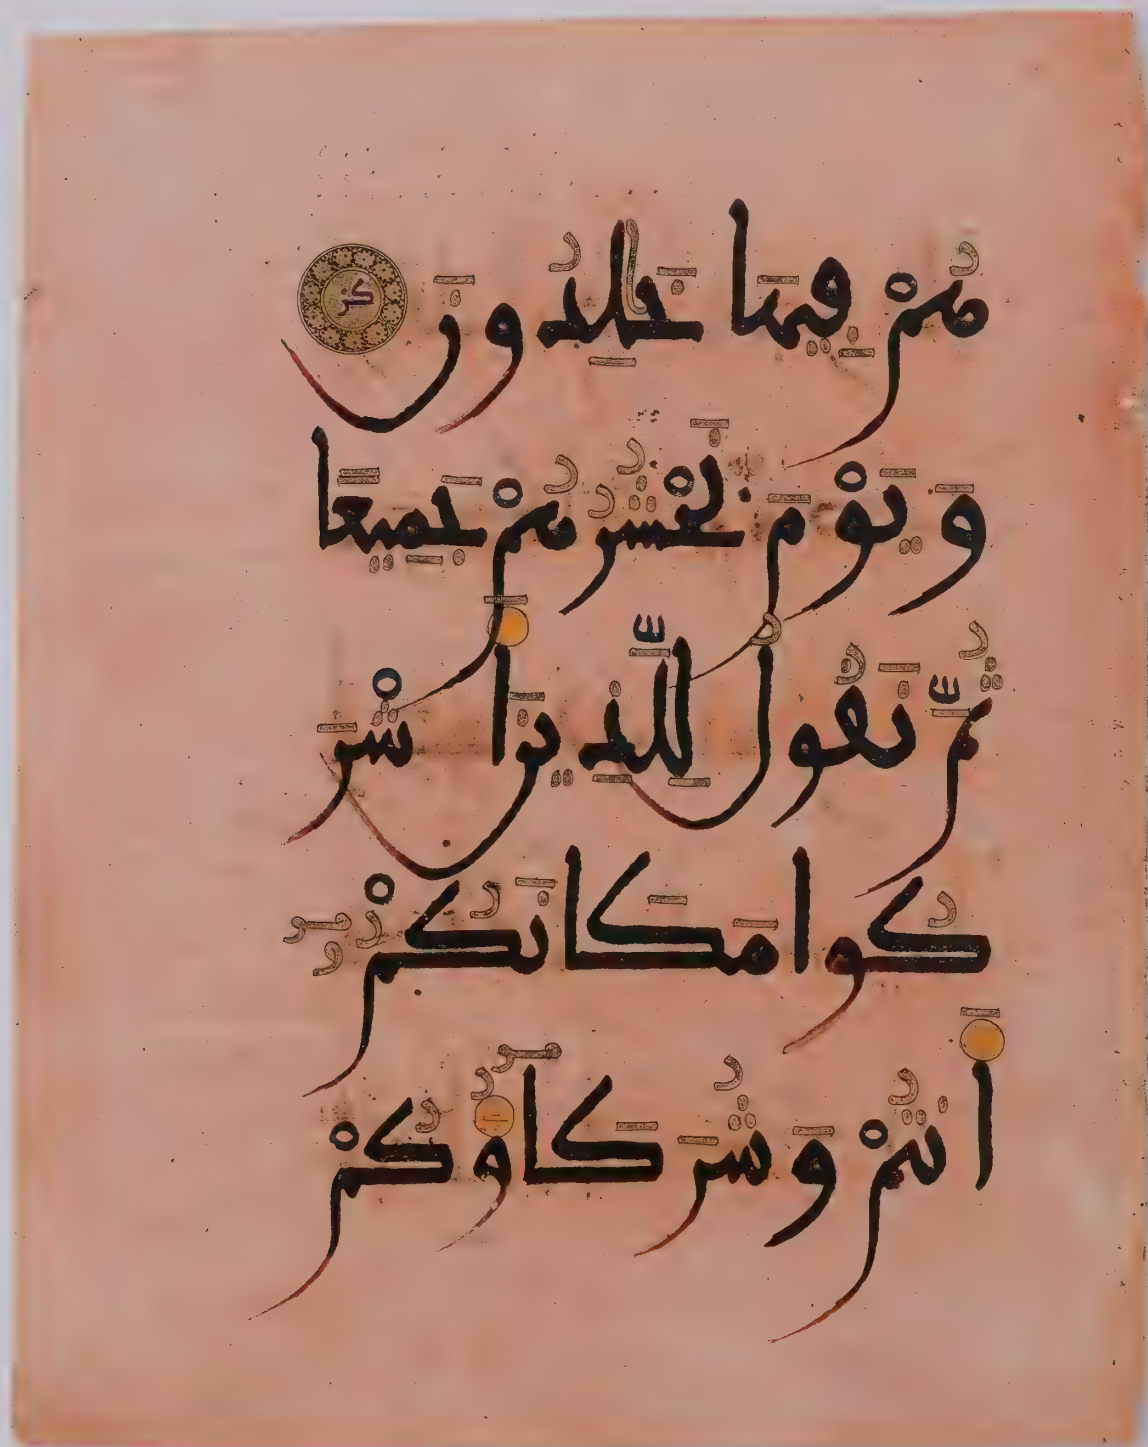 هُمْ فِيهَا خَٰلِدُونَ كز
وَيَوْمَ نَحْشُرُهُمْ جَمِيعًا
ثُمَّ نَقُولُ لِلَّذِينَ أَشْرَ
كُوا مَكَانَكُمُۥٓ
أَنتُمْ وَشُرَكَاؤُكُمْ